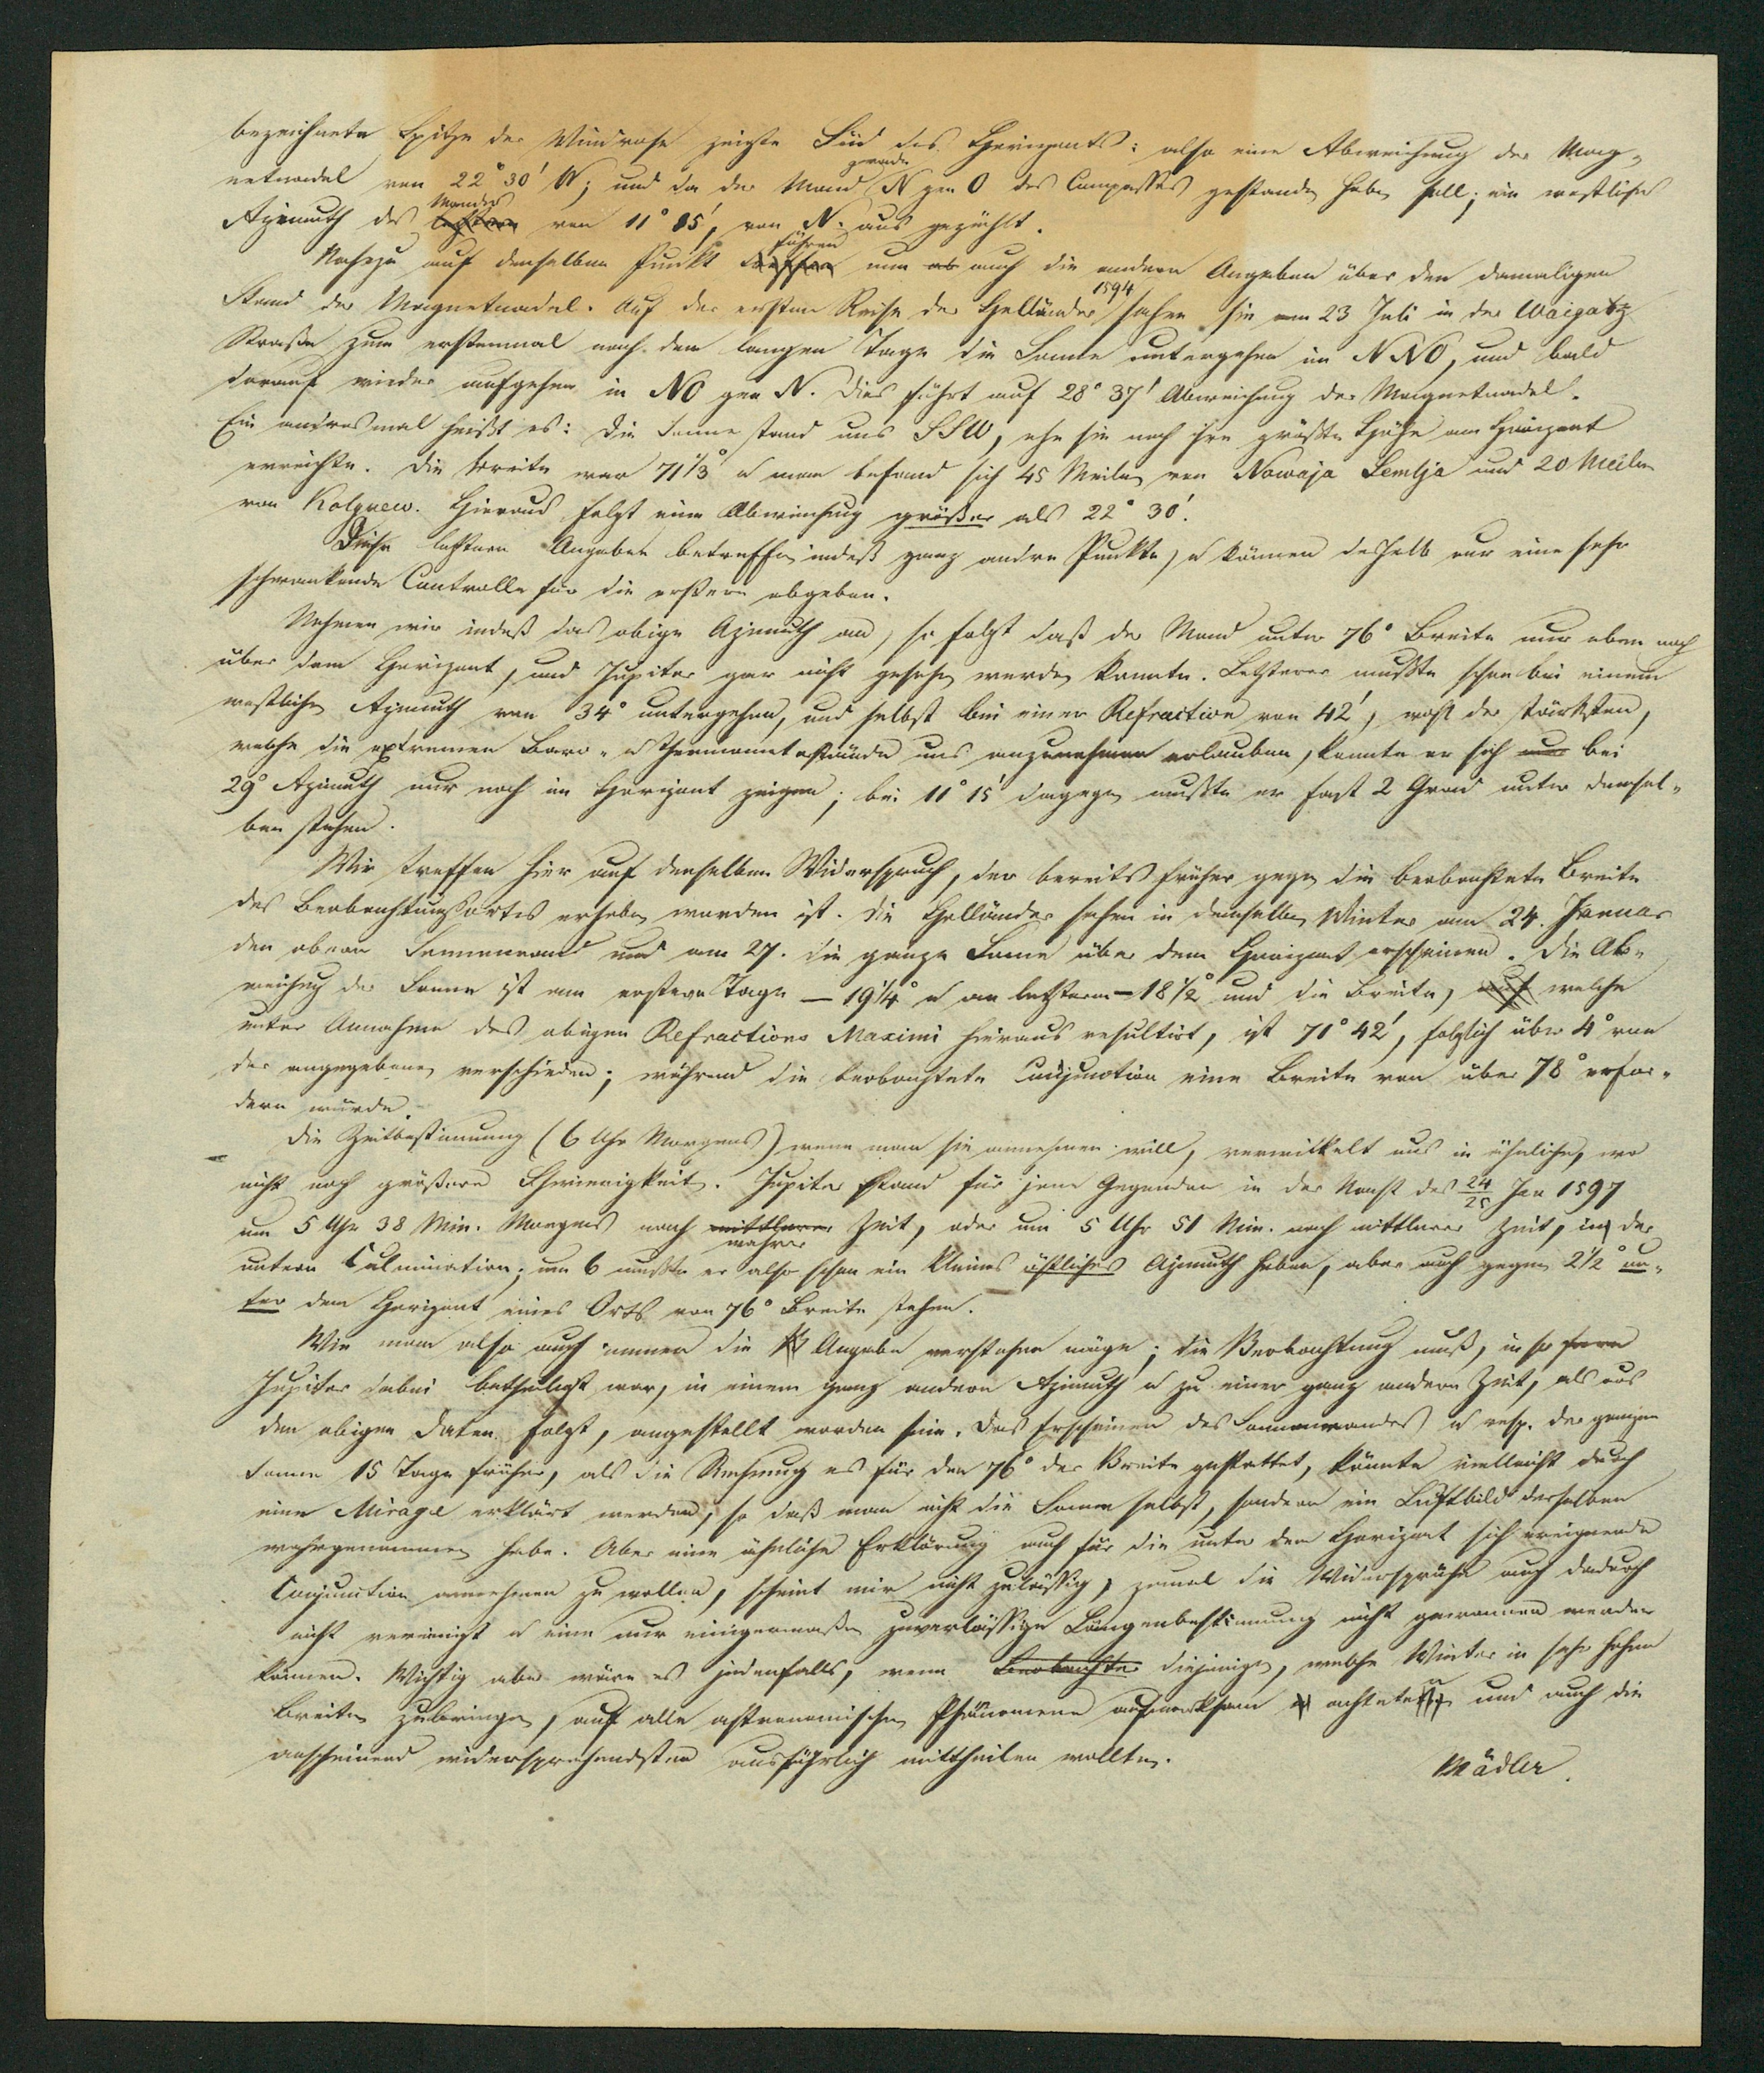 bezeichnete Spitze der Windrose zeigte Süd des Horizonts; also eine Abweichung der Mag-
netnadel von 22° 30' W; und da der Mond gerade N gen O des Compasses gestanden haben soll; ein westliches
Azimuth des Mondes von 11° 15', von N. aus gezählt.
Nahezu auf denselben Punkt führen nun auch die andern Angaben über den damaligen
Stand der Magnetnadel. Auf der ersten Reise der Holländer 1594 sahen sie am 23 Juli in der Waigatz
Straße zum erstenmal nach dem langen Tage die Sonne untergehen im NNO, und bald
darauf wieder aufgehen in NO gen N. Dies führt auf 28° 37' Abweichung der Magnetnadel.
Ein andresmal heißt es: die Sonne stand uns SSW, ehe sie noch ihre größte Höhe am Horizont
erreichte. Die Breite war 71⅓° u man befand sich 45 Meilen von Nowaja Semlja und 20 Meilen
von Kolguew. Hieraus folgt eine Abweichung größer als 22° 30'.
Diese letztern Angaben betreffen indeß ganz andre Punkte, u können deßhalb nur eine sehr
schwankende Controlle für die erstern abgeben.
Nehmen wir indeß das obige Azimuth an, so folgt daß der Mond unter 76° Breite nur eben noch
über dem Horizont, und Jupiter gar nicht gesehen werden konnte. Letzterer mußte schon bei einem
westlichen Azimuth von 34° untergehen, und selbst bei einer Refraction von 42', wohl der stärksten,
welche die extremen Baro- u Thermometerstände uns anzunehmen erlauben, konnte er sich bei
29° Azimuth nur noch im Horizont zeigen; bei 11° 15' dagegen mußte er fast 2 Grad unter demsel-
ben stehen.
Wir treffen hier auf denselben Widerspruch, der bereits früher gegen die beobachtete Breite
des Beobachtungsortes erhoben worden ist. Die Holländer sahen in demselben Winter am 24. Januar
den obern Sonnenrand und am 27. die ganze Sonne über dem Horizont erscheinen. Die Ab-
weichung der Sonne ist am erstern Tage – 19¼° u am letztern – 18½° und die Breite, welche
unter Annahme des obigen Refractions Maximi hieraus resultirt, ist 71° 42', folglich über 4° von
der angegebenen verschieden; während die beobachtete Conjunction eine Breite von über 78° erfor-
dern würde.
Die Zeitbestimmung (6 Uhr Morgens) wenn man sie annehmen will, verwickelt uns in ähnliche, wo
nicht noch größere Schwierigkeit. Jupiter stand für jene Gegenden in der Nacht des 24/25 Jan 1597
um 5 Uhr 38 Min. Morgens nach wahrer Zeit, oder um 5 Uhr 51 Min. nach mittlerer Zeit, in der
untern Culmination; um 6 mußte er also schon ein kleines östliches Azimuth haben, aber auch gegen 2½° un-
ter dem Horizont eines Orts von 76° Breite stehen.
Wie man also auch immer die Angabe verstehen möge; die Beobachtung muß, in so fern
Jupiter dabei betheiligt war, in einem ganz andern Azimuth u zu einer ganz andern Zeit, als aus
den obigen Daten folgt, angestellt worden sein. Das Erscheinen des Sonnenrandes u resp. der ganzen
Sonne 15 Tage früher, als die Rechnung es für den 76° der Breite gestattet, könnte vielleicht durch
eine Mirage erklärt werden, so daß man nicht die Sonne selbst, sondern ein Luftbild derselben
wahrgenommen habe. Aber eine ähnliche Erklärung auch für die unter dem Horizont sich ereignende
Conjunction annehmen zu wollen, scheint mir nicht zulässig, zumal die Widersprüche auch dadurch
nicht vereinigt u eine nur einigermaßen zuverlässige Längenbestimmung nicht gewonnen werden
können. Wichtig aber wäre es jedenfalls, wenn diejenigen, welche Winter in sehr hohen
Breiten zubringen, auf alle astronomischen Phänomene aufmerksam achteten und auch die
anscheinend widersprechendsten ausführlich mittheilen wollten.
Mädler.